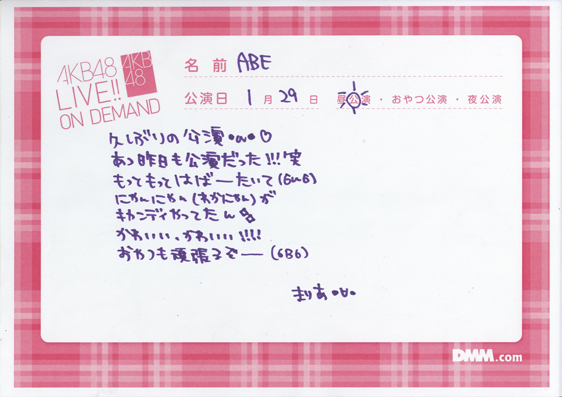 AKB48
LIVE!!
ON DEMAND
AKB
48
名前 ABE
公演日 1月29日 昼公演・おやつ公演・夜公演
久しぶりの公演•ω•♡
あっ昨日も公演だった!!!笑
もってもってはばーたいて(6ω6)
にゃんにゃん(わかにゃん)が
キャンディやってたん
かわいい、かわいい!!!!
おやつも頑張るぞー(6B6)
まりあ
DMM.com